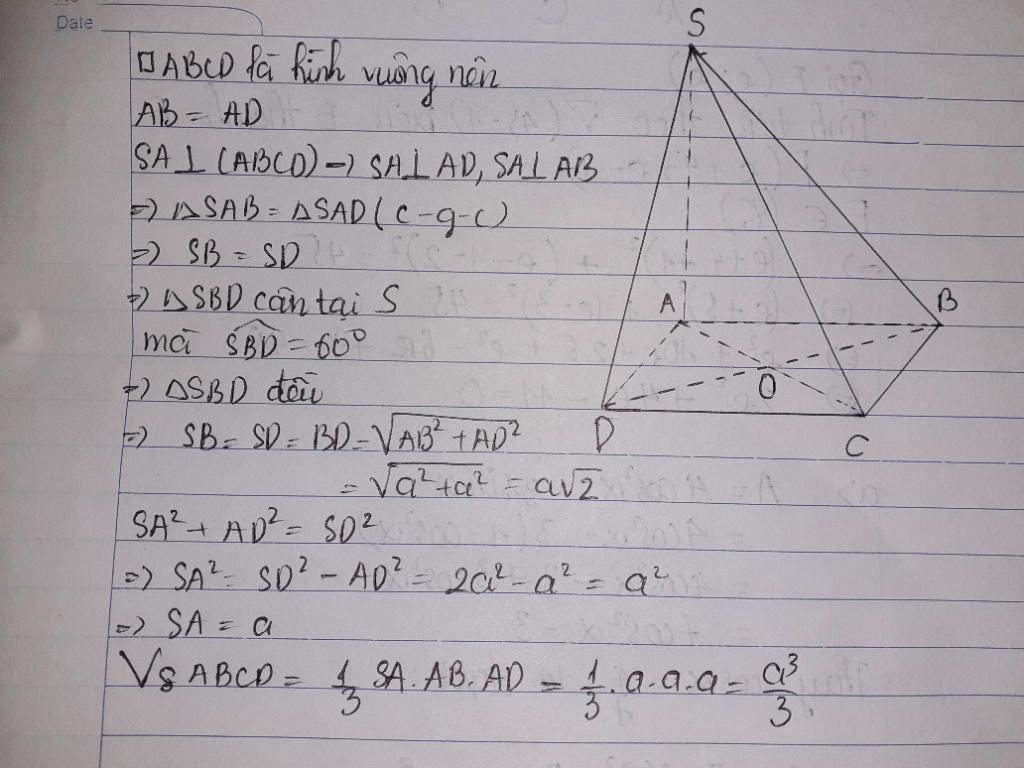 Date
□ABCD là hình vuông nên
AB = AD
SA⊥(ABCD) => SA⊥AD, SA⊥AB
=> △SAB = △SAD (c-g-c)
=> SB = SD
=> △SBD cân tại S
mà \widehat{SBD} = 60°
=> △SBD đều
=> SB = SD = BD = √(AB² + AD²)
= √(a² + a²) = a√2
SA² + AD² = SD²
=> SA² = SD² - AD² = 2a² - a² = a²
=> SA = a
VSABCD = 1/3 SA.AB.AD = 1/3 .a.a.a = a³/3
S
A
B
O
D
C